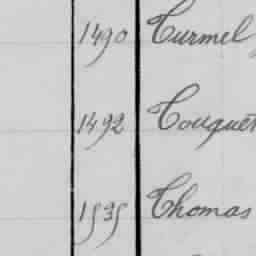 1490 Turmel
1492 Touquet
1535 Thomas